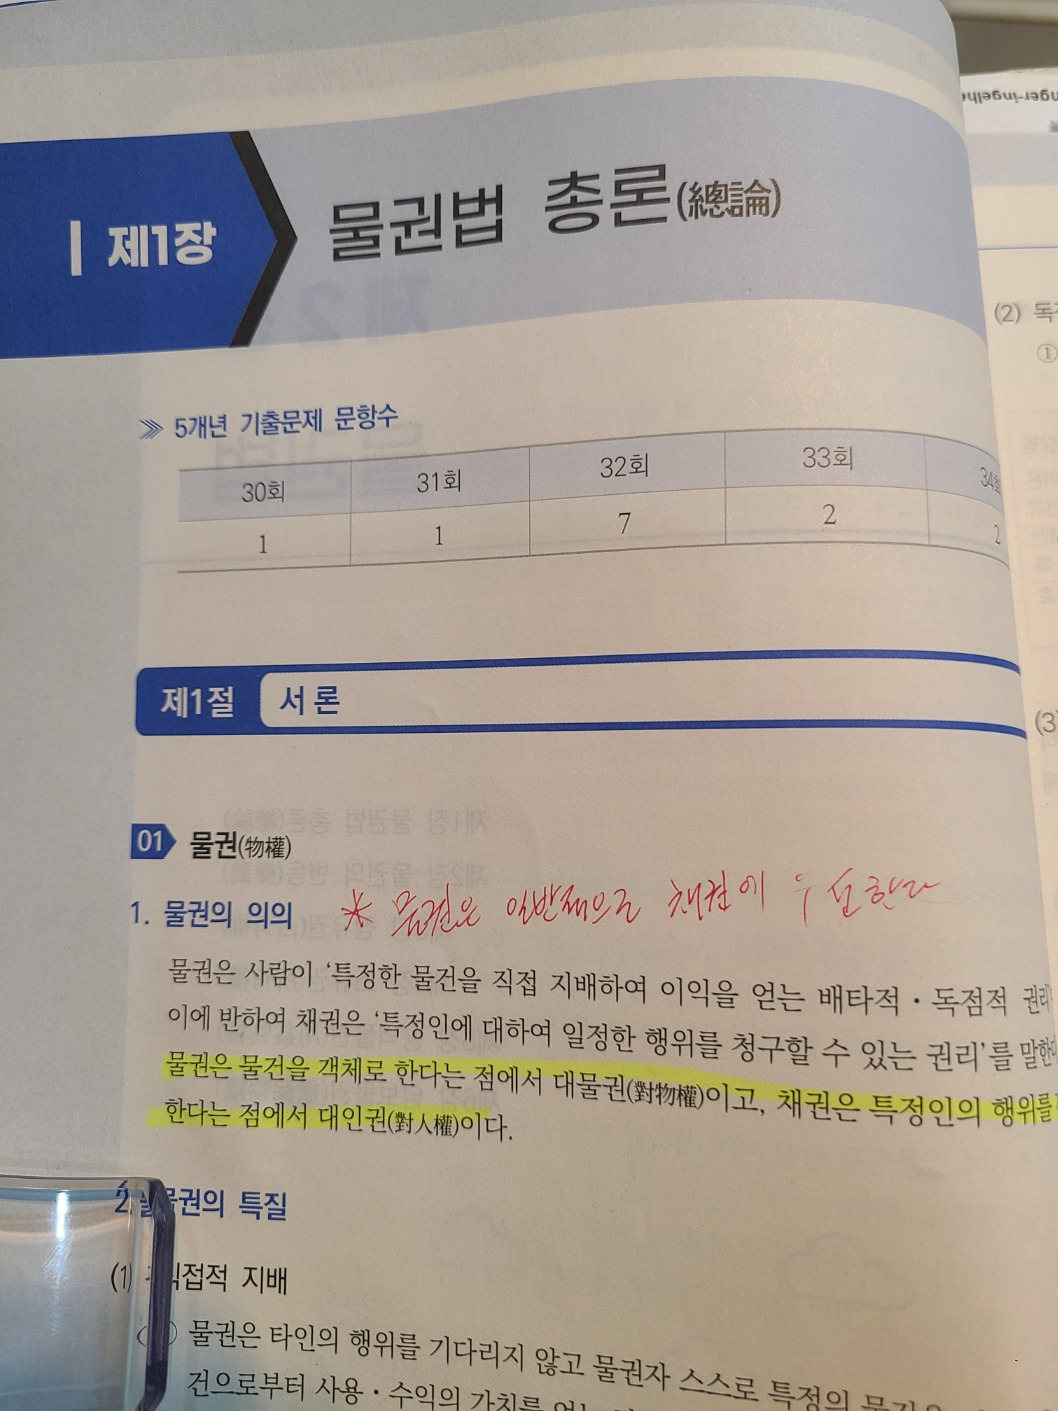 제1장
물권법 총론(總論)
5개년 기출문제 문항수
30회 31회 32회 33회
1 1 7 2 2
제1절 서 론
01 물권(物權)
1. 물권의 의의
* 물권은 일반적으로 채권에 우선한다
물권은 사람이 ‘특정한 물건을 직접 지배하여 이익을 얻는 배타적·독점적 권리
이에 반하여 채권은 ‘특정인에 대하여 일정한 행위를 청구할 수 있는 권리’를 말한
물권은 물건을 객체로 한다는 점에서 대물권(對物權)이고, 채권은 특정인의 행위를
한다는 점에서 대인권(對人權)이다.
2. 물권의 특질
(1) 직접적 지배
물권은 타인의 행위를 기다리지 않고 물권자 스스로 특정의
건으로부터 사용·수익의 가치를
(2)
①
(3)